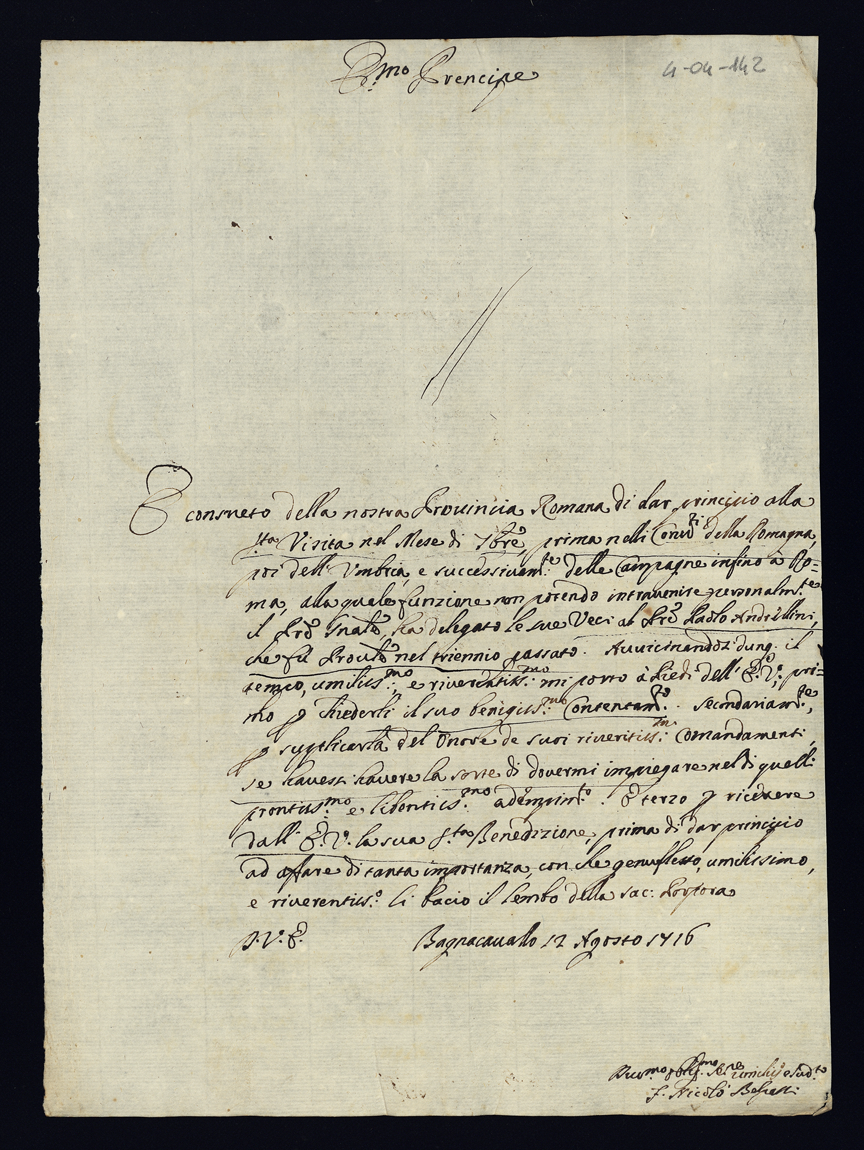 Em.mo Prencipe
4-04-142
È consueto della nostra Provincia Romana di dar principio alla
S.ta Visita nel Mese di 7bre, prima nelli Conv.ti della Romagna,
poi dell'Umbria, e successivam.te delle Campagne infino à Ro=
ma, alla quale funzione non potendo intravenire personalm.te
il Prõ Gnale, ha delegato le sue Veci al Prẽ Paolo Andrillini,
che fù Provle nel triennio passato. Avvicinandosi dunq. il
tempo, umiliss.mo, e riverentiss.mo mi porto à Piedi dell'E.V., pri-
mo p chiederli il suo benigniss.mo Contentam.to. secondariam.te,
p supplicarla del Onore de suoi riveritiss.mi Comandamenti,
se havessi havere la sorte di dovermi impiegare nel di quelli
prontiss.mo e libentiss.mo adempim.to. E terzo p ricevere
dall'E.V. la sua S.ta Benedizione, prima di dar principio
ad affare di tanta importanza, con che genuflesso, umilissimo,
e riverentiss.o li bacio il lembo della sac: Porpora
D.V.E.
Bagnacavallo 12 Agosto 1716
F. Nicolò